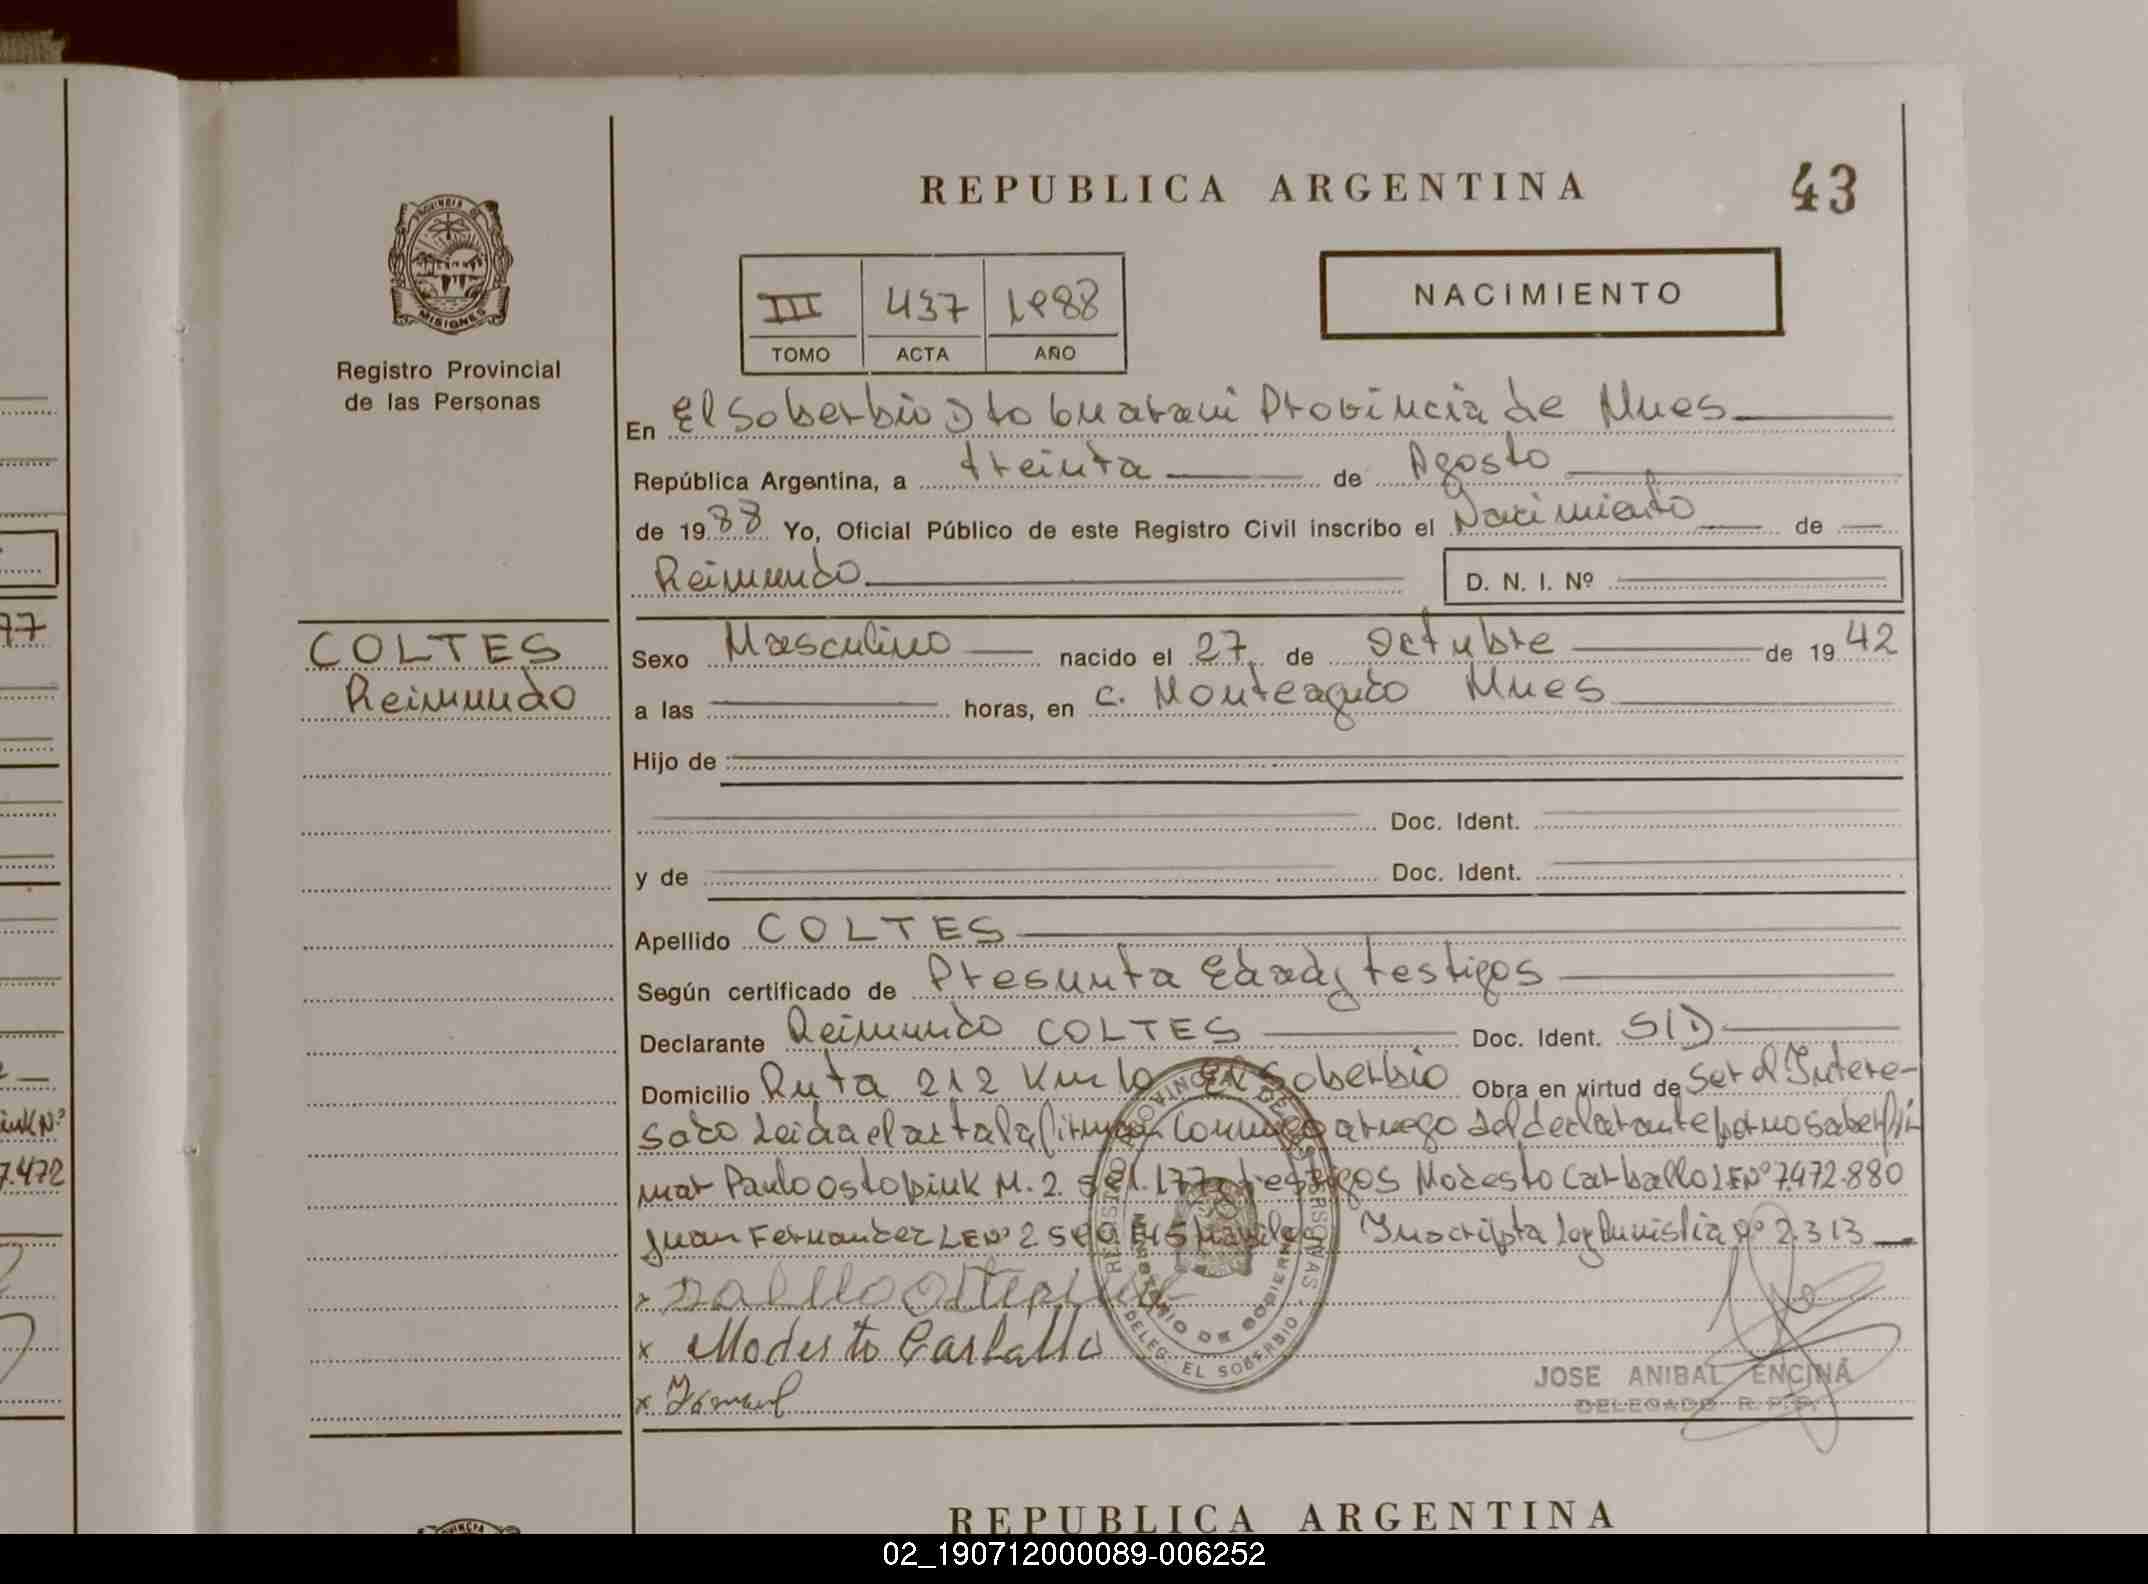 REPUBLICA ARGENTINA
43
PROVINCIA DE
MISIONES
Registro Provincial
de las Personas
III 437 1988
TOMO ACTA AÑO
NACIMIENTO
En El Soberbio Dto Guarani Provincia de Mnes
República Argentina, a treinta de Agosto
de 1988 Yo, Oficial Público de este Registro Civil inscribo el Nacimiento de
Reimundo D. N. I. Nº
COLTES
Reimundo
Sexo Masculino nacido el 27 de Octubre de 1942
a las horas, en C. Monteagudo Mnes
Hijo de
Doc. Ident.
y de Doc. Ident.
Apellido COLTES
Según certificado de Presunta Edad y testigos
Declarante Reimundo COLTES Doc. Ident. S/D
Domicilio Ruta 212 Km 10 El Soberbio Obra en virtud de Ser el Intere-
sado Leida el acta la firman conmigo a ruego del declarante por no saber fir
mar Paulo Ostopiuk M. 2. 581.177 y testigos Modesto Carballo LE Nº 7.472.880
Juan Fernandez LE Nº 2 Inscripta Ley Amnistia Nº 2.313
x Modesto Carballo
x
DELEG. EL SOBERBIO
JOSE ANIBAL ENCINA
DELEGADO R. P. P.
77
7.472
REPUBLICA ARGENTINA
02_190712000089-006252